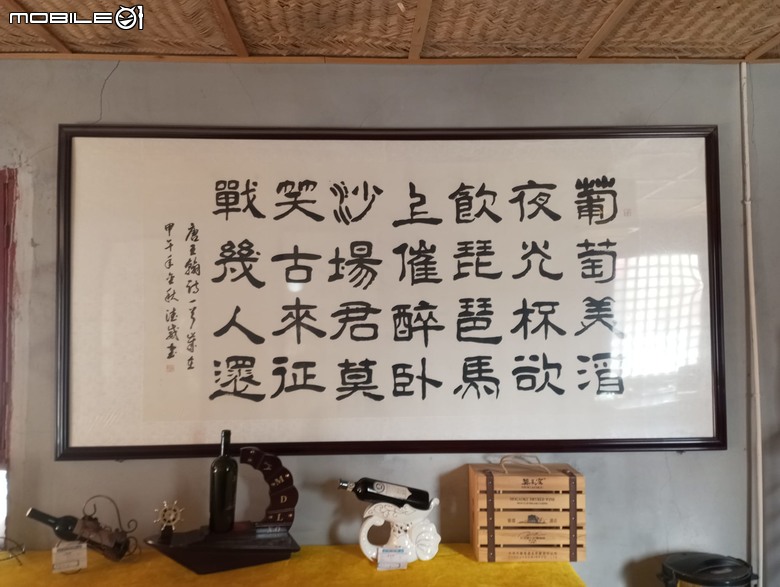 MOBILE01
葡萄美酒
夜光杯欲
飲琵琶馬
上催醉卧
沙場君莫
笑古來征
戰幾人還
唐王翰詩一首歲在
甲午年金秋